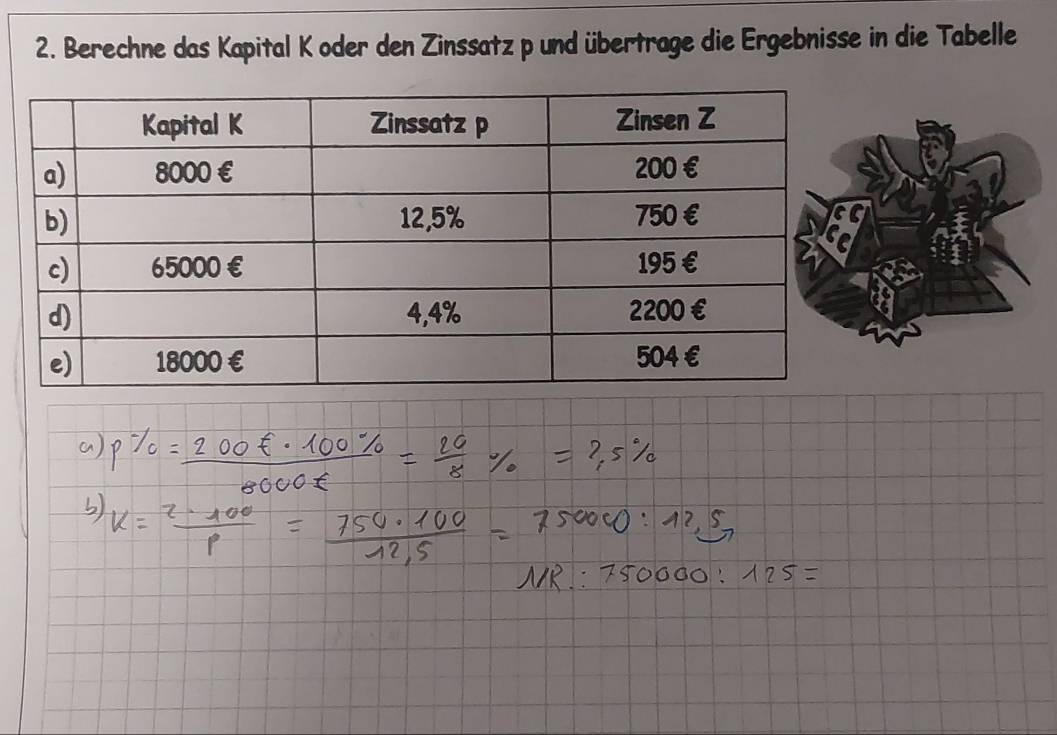 2. Berechne das Kapital K oder den Zinssatz p und übertrage die Ergebnisse in die Tabelle
Kapital K Zinssatz p Zinsen Z
a) 8000 € 200 €
b) 12,5% 750 €
c) 65000 € 195 €
d) 4,4% 2200 €
e) 18000 € 504 €
a) p% = 200 € · 100% / 8000 € = 20/8 % = 2,5%
b) K = Z · 100 / p = 750 · 100 / 12,5 = 750000 : 12,5
NR.: 750000 : 125 =